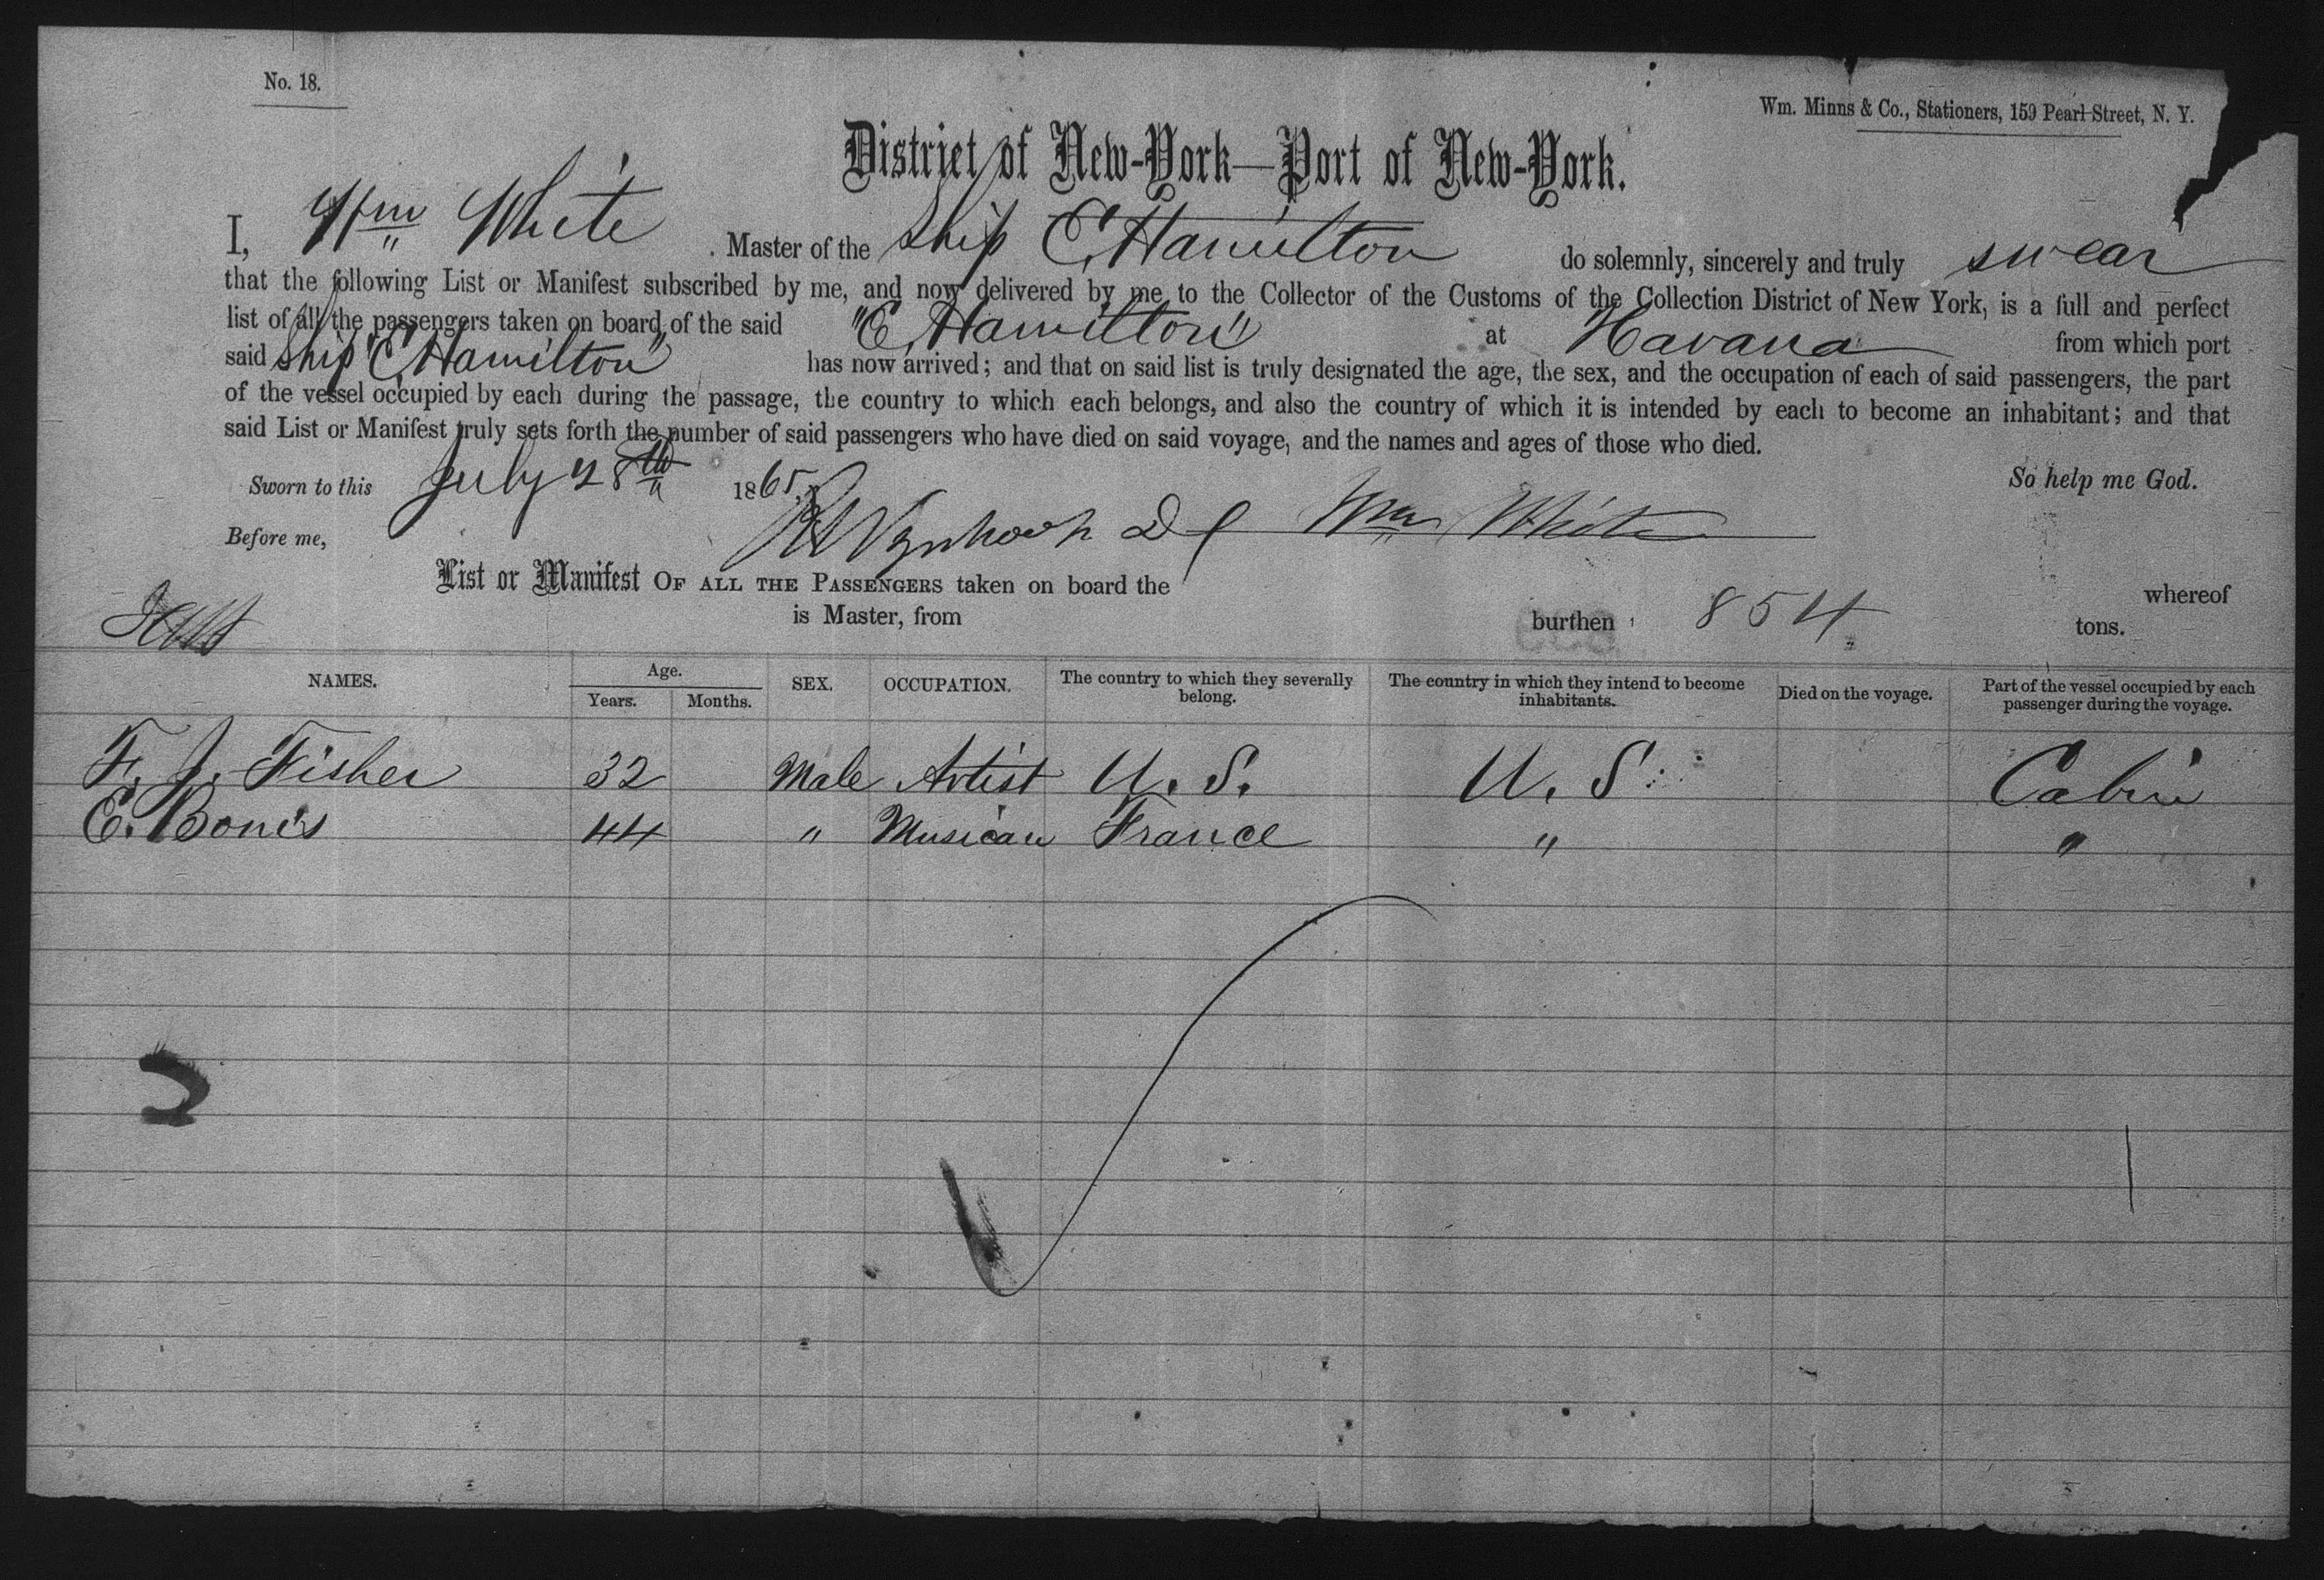 No. 18.
Wm. Minns & Co., Stationers, 159 Pearl Street, N. Y.
District of New-York—Port of New-York.
I, Wm White . Master of the Ship E, Hamilton do solemnly, sincerely and truly swear
that the following List or Manifest subscribed by me, and now delivered by me to the Collector of the Customs of the Collection District of New York, is a full and perfect
list of all the passengers taken on board of the said "E, Hamilton" at Havana from which port
said Ship "E, Hamilton" has now arrived; and that on said list is truly designated the age, the sex, and the occupation of each of said passengers, the part
of the vessel occupied by each during the passage, the country to which each belongs, and also the country of which it is intended by each to become an inhabitant; and that
said List or Manifest truly sets forth the number of said passengers who have died on said voyage, and the names and ages of those who died.
Sworn to this July 28th 1865, So help me God.
Before me, Wm White
List or Manifest OF ALL THE PASSENGERS taken on board the whereof
is Master, from burthen 854 tons.
NAMES. Age. Years. Months. SEX. OCCUPATION. The country to which they severally belong. The country in which they intend to become inhabitants. Died on the voyage. Part of the vessel occupied by each passenger during the voyage.
F. J. Fisher 32 Male Artist U. S. U. S. Cabin
E. Bonis 44 " Musican France " "